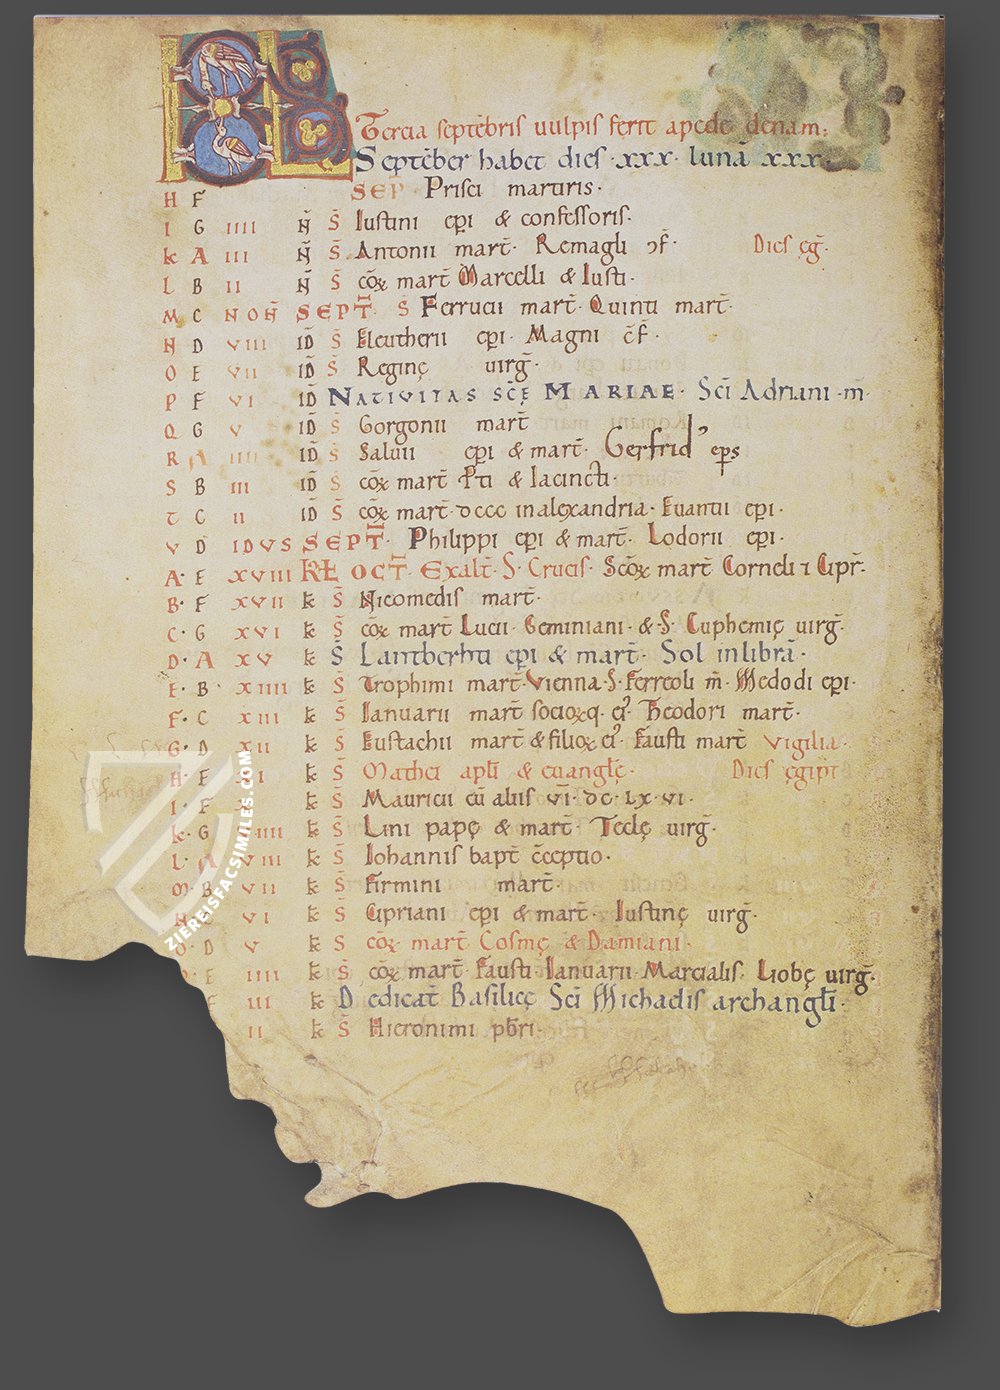 Tercia septēbris uulpis ferit apede denam:
Septēber habet dies xxx. lunā xxx.
H F SEP. Prisci martiris.
I G IIII N̄ S̄ Iustini ep̄i & confessoris.
K A III N̄ S̄ Antonii mart̄. Remagli ɔf̄. Dies eḡ.
L B II N̄ S̄ cōꝝ mart̄ Marcelli & Iusti.
M C NON̄ SEPT̄. S̄ Ferrucii mart̄. Quinti mart̄.
N D VIII ID̄ S̄ Eleutherii ep̄i. Magni c̄f.
O E VII ID̄ S̄ Reginę uirḡ.
P F VI ID̄ NATIVITAS SC̄E MARIAE. Sc̄i Adriani m̄
Q G V ID̄ S̄ Gorgonii mart̄
R A IIII ID̄ S̄ Saluii ep̄i & mart̄. Gerfrid' ep̄s
S B III ID̄ S̄ cōꝝ mart̄ P̄ti & Iacincti.
T C II ID̄ S̄ cōꝝ mart̄. dccc in alexandria. Euantii ep̄i.
V D IDVS SEPT̄. Philippi ep̄i & mart̄. Lodorii ep̄i.
A. E XVIII KL̄ OCT̄. Exalt̄. S. Crucis. S cōꝝ mart̄ Corneli ⁊ Cipr̄.
B. F XVII k S̄ Nicomedis mart̄.
C. G XVI k S̄ cōꝝ mart̄ Lucii. Geminiani. & S. Euphemię uirḡ.
D. A XV k S̄ Lantberhti ep̄i & mart̄. Sol in librā.
E. B. XIIII k S̄ Trophimi mart̄. Vienna. S. Ferreoli m̄. Medodi ep̄i.
F. C XIII k S̄ Ianuarii mart̄ socioꝝq. ei' Theodori mart̄.
G. D XII k S̄ Eustachii mart̄ & filioꝝ ei' Fausti mart̄ vigilia.
H. E XI k S̄ Mathei apl̄i & euangl̄ę. Dies egipt̄
I. F X k S̄ Mauricii cū aliis vī. dc. lx. vi.
K. G VIIII k S̄ Lini papę & mart̄. Teclę uirḡ.
L. A VIII k S̄ Iohannis bapt̄ c̄ceptio.
M. B. VII k S̄ Firmini mart̄.
N. C VI k S̄ Cipriani ep̄i & mart̄. Iustinę uirḡ.
O. D V k S cōꝝ mart̄ Cosmę & Damiani.
E IIII k S̄ cōꝝ mart̄. Fausti. Ianuarii. Marcialis. Liobę uirḡ.
F III k Dedicat̄ Basilicę Sc̄i Michaelis archangl̄i.
II k S̄ Hieronimi pb̄ri.
ZIEREISFACSIMILES.COM